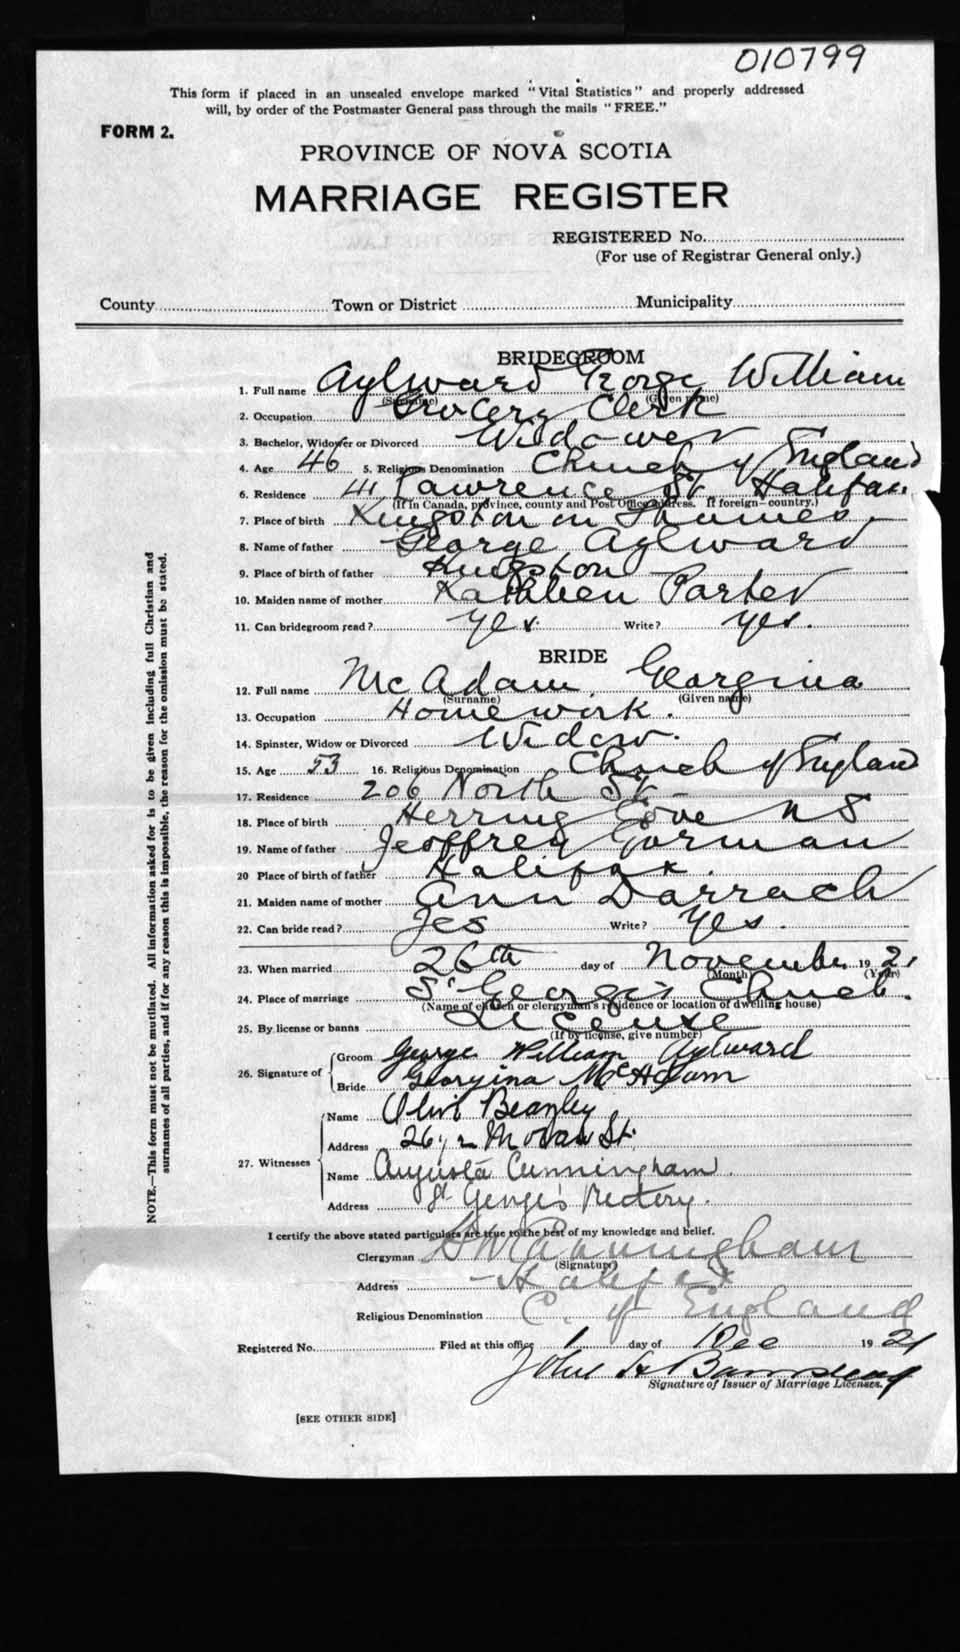 010799
This form if placed in an unsealed envelope marked "Vital Statistics" and properly addressed
will, by order of the Postmaster General pass through the mails "FREE."
FORM 2.
PROVINCE OF NOVA SCOTIA
MARRIAGE REGISTER
REGISTERED No.
(For use of Registrar General only.)
County Town or District Municipality
BRIDEGROOM
1. Full name Aylward George William
(Surname) (Given name)
2. Occupation Grocery Clerk
3. Bachelor, Widower or Divorced Widower
4. Age 46 5. Religious Denomination Church of England
6. Residence 41 Lawrence St Halifax.
(If in Canada, province, county and Post Office address. If foreign—country.)
7. Place of birth Kingston on Thames
8. Name of father George Aylward
9. Place of birth of father Kingston
10. Maiden name of mother Kathleen Parter
11. Can bridegroom read? Yes. Write? yes.
BRIDE
12. Full name McAdam, Georgina
(Surname) (Given name)
13. Occupation Homework.
14. Spinster, Widow or Divorced Widow.
15. Age 53 16. Religious Denomination Church of England
17. Residence 206 North St
18. Place of birth Herring Cove NS
19. Name of father Jeoffrey Gorman
20 Place of birth of father Halifax.
21. Maiden name of mother Ann Darrach
22. Can bride read? Yes Write? Yes.
23. When married 26th day of November 1921
(Month) (Year)
24. Place of marriage St George's Church.
(Name of church or clergyman's residence or location of dwelling house)
25. By license or banns License
(If by license, give number)
26. Signature of Groom George William Aylward
Bride Georgina McAdam
27. Witnesses Name Beazley
Address St.
Name Augusta Cunningham.
Address St George's Rectory.
I certify the above stated particulars are true to the best of my knowledge and belief.
Clergyman Cunningham
(Signature)
Address Halifax
Religious Denomination C. of England
Registered No. Filed at this office 1 day of Dec 1921
John
Signature of Issuer of Marriage Licenses.
[SEE OTHER SIDE]
NOTE.—This form must not be mutilated. All information asked for is to be given including full Christian and
surnames of all parties, and if for any reason this is impossible, the reason for the omission must be stated.